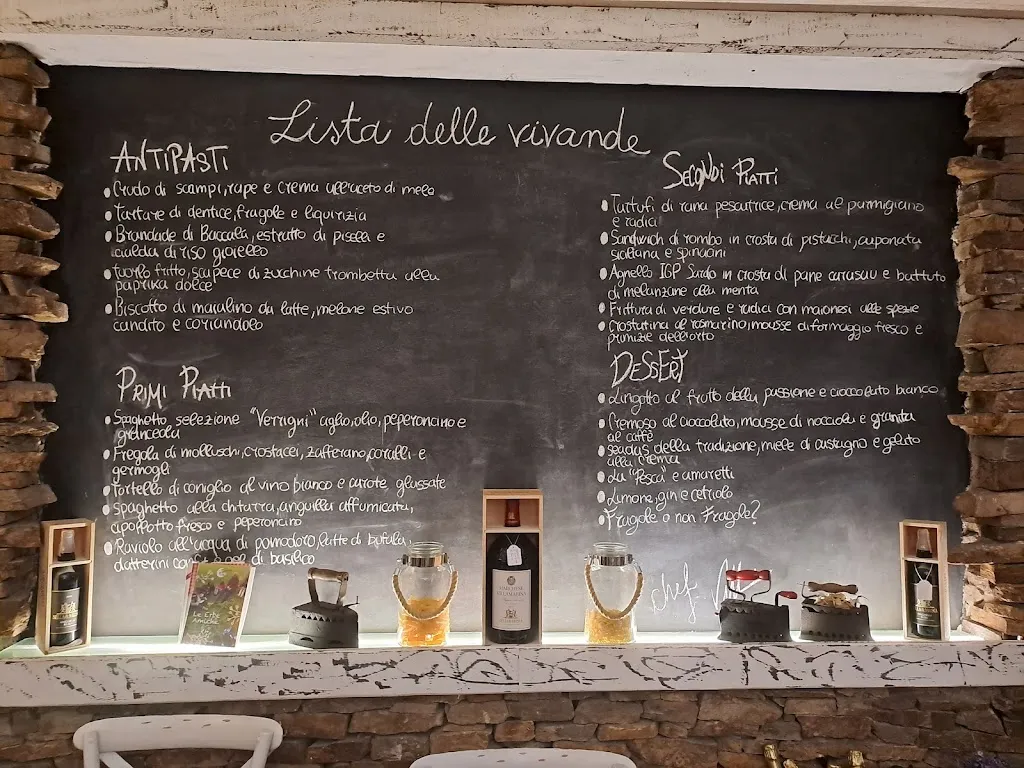 Lista delle vivande
ANTIPASTI
• Crudo di scampi, rape e crema all'aceto di mele
• Tartare di dentice, fragole e liquirizia
• Brandade di Baccalà, estratto di piselli e
cialda di riso gioiello
• tuorlo fritto, scapece di zucchine trombetta alla
paprika dolce
• Biscotto di maialino da latte, melone estivo
candito e coriandolo
PRIMI PIATTI
• Spaghetto selezione "Verrigni" aglio, olio, peperoncino e
granceola
• Fregola di molluschi, crostacei, zafferano, coralli e
germogli
• Tortello di coniglio al vino bianco e carote glassate
• spaghetto alla chitarra, anguilla affumicata,
cipollotto fresco e peperoncino
• Raviolo all'acqua di pomodoro, latte di bufala,
datterini con gel di basilico
SECONDI PIATTI
• Tartufi di rana pescatrice, crema al parmigiano
e radici
• Sandwich di rombo in crosta di pistacchi, caponata
siciliana e spinacini
• Agnello IGP Sardo in crosta di pane carasau e battuto
di melanzane alla menta
• Frittura di verdure e radici con maionesi alle spezie
• Crostatina al rosmarino, mousse di formaggio fresco e
primizie dell'orto
DESSERT
• Lingotto al frutto della passione e cioccolato bianco
• Cremoso al cioccolato, mousse di nocciola e granita
al caffè
• seadas della tradizione, miele di castagno e gelato
alla crema
• La "Pesca" e amaretti
• Limone, gin e cetriolo
• Fragole o non Fragole?
chef